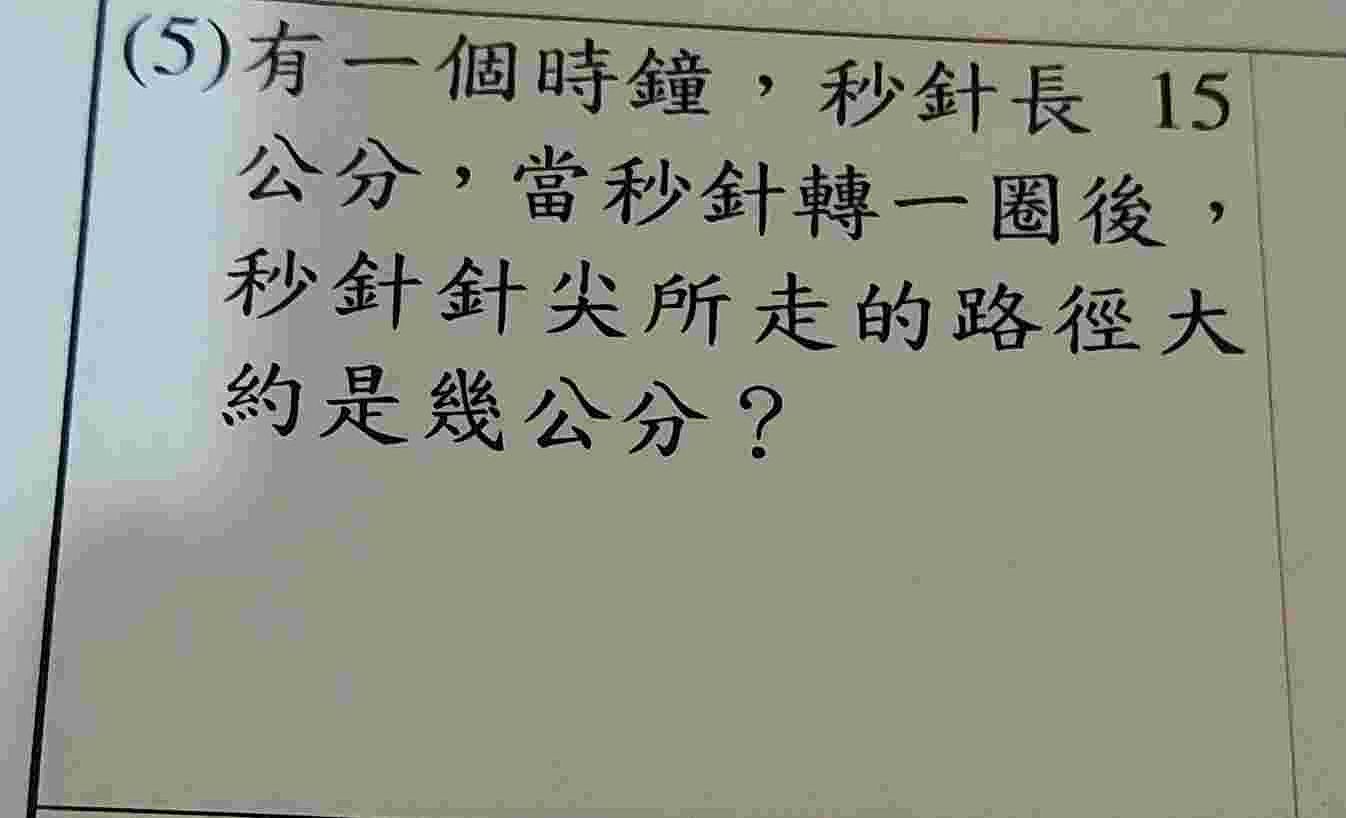 (5)有一個時鐘，秒針長 15
公分，當秒針轉一圈後，
秒針針尖所走的路徑大
約是幾公分？